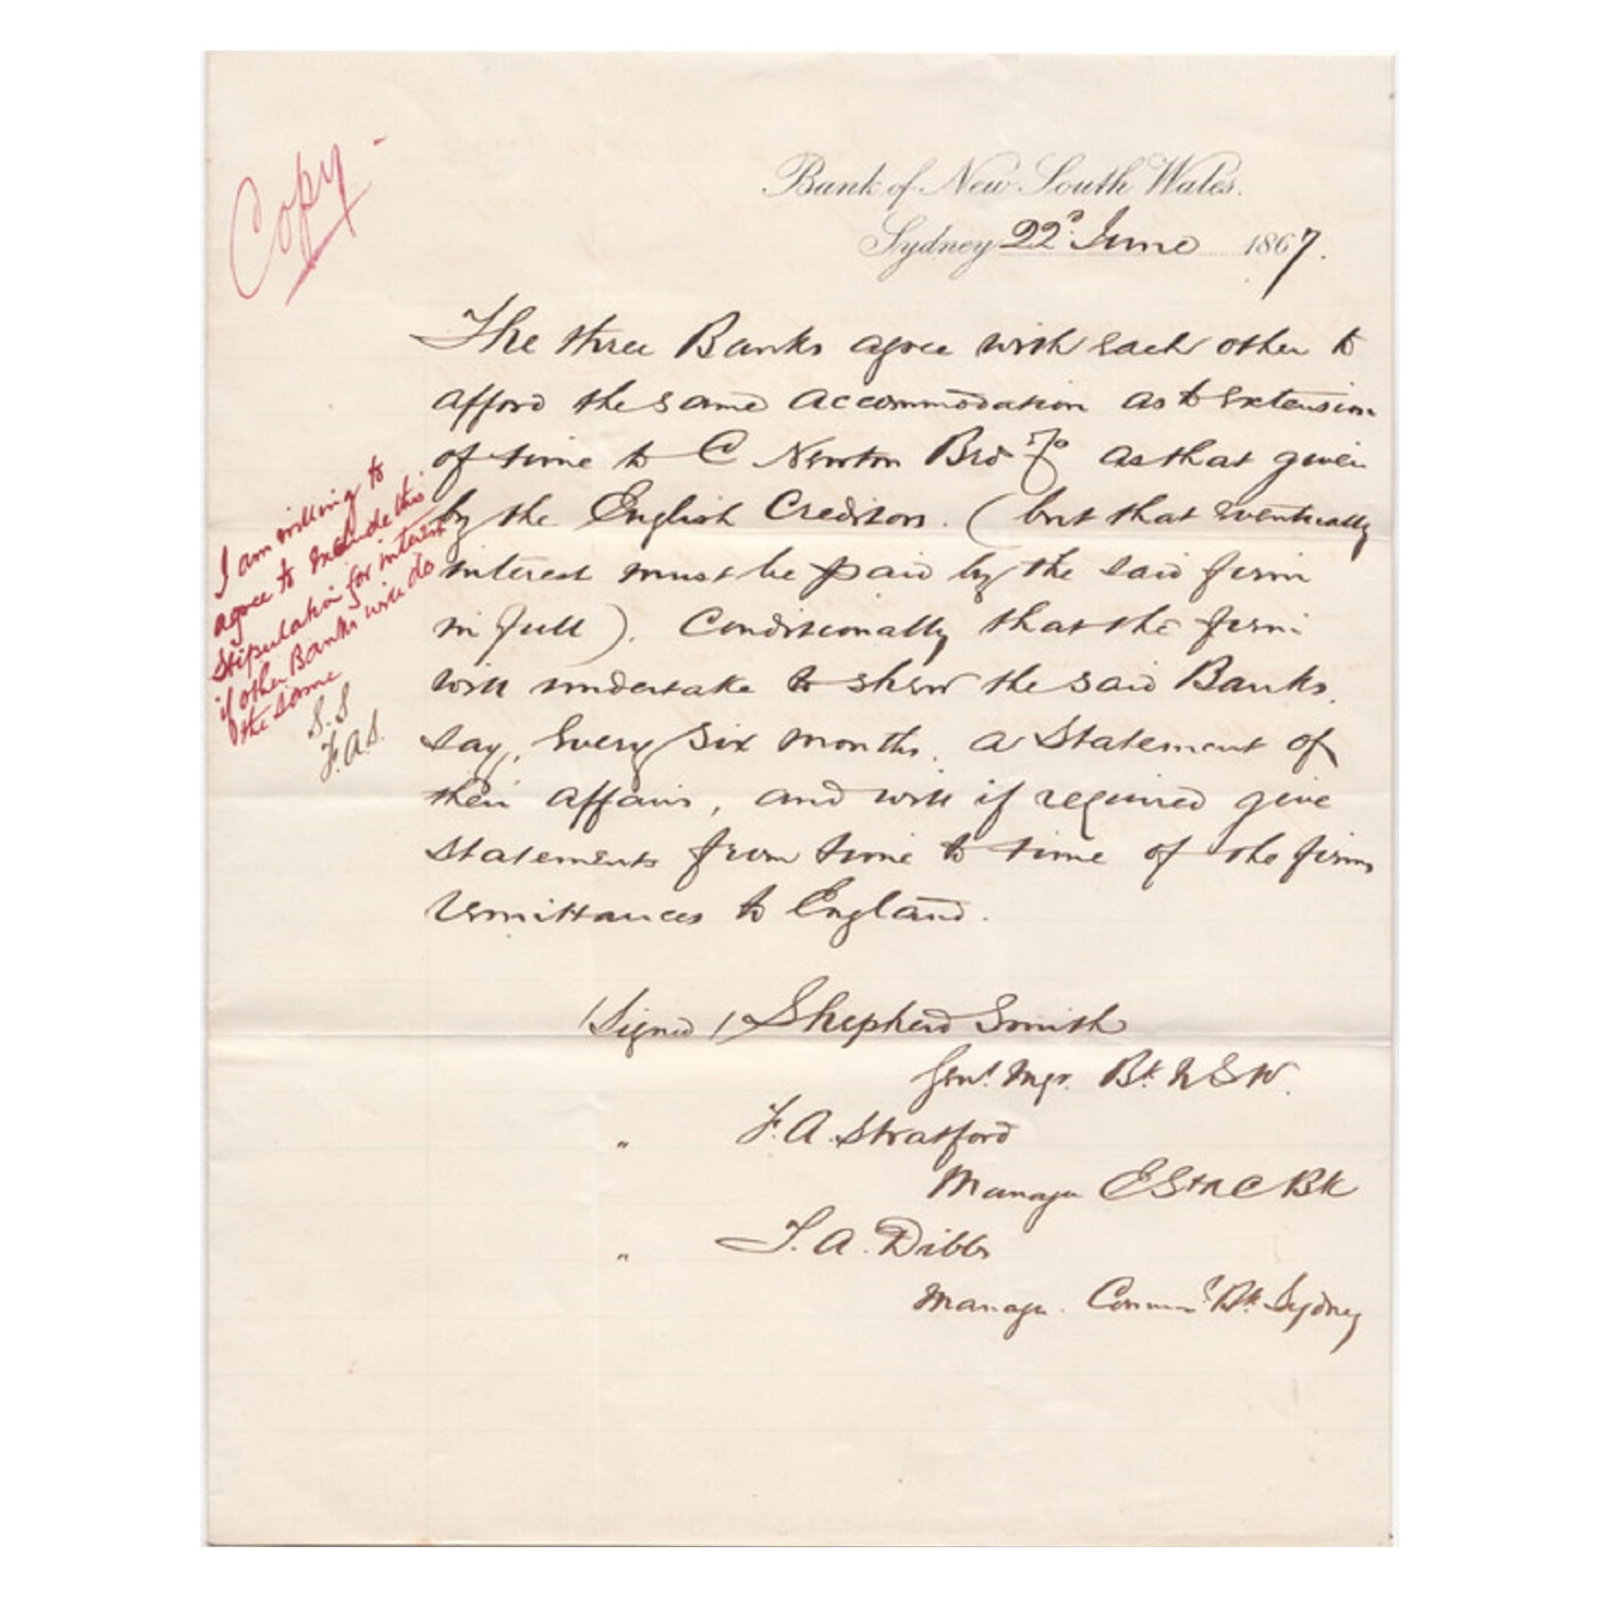 Copy -
Bank of New South Wales.
Sydney 22d June 1867.
The three Banks agree with each other to
afford the same accommodation as to extension
of time to C Newton Bro & Co as that given
by the English Creditors. (but that eventually
interest must be paid by the said firm
in full). Conditionally that the firm
will undertake to shew the said Banks,
say, every six months, a statement of
their affairs, and will if required give
statements from time to time of the firms
remittances to England.
I am willing to
agree to exclude this
stipulation for interest
if other Banks will do
the same
S.S
F.A.S.
(Signed) Shepherd Smith
Genl. Mgr. Bk N S W.
" F. A. Stratford
Manager E S & A C Bk
" T. A. Dibbs
Manager. Comml. Bk. Sydney